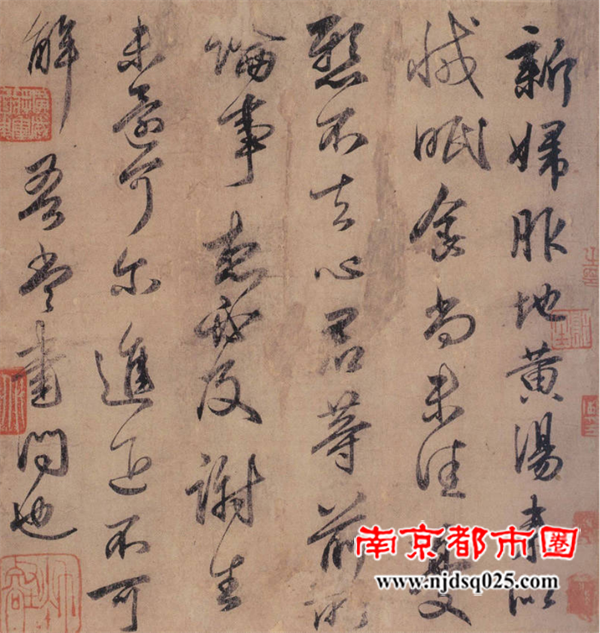 新婦服地黄湯来似
減眠食尚未佳憂
懸不去心君等前所
論事想必及謝生
未還何尔進退不可
解吾當書問也
南京都市圈
www.njdsq025.com